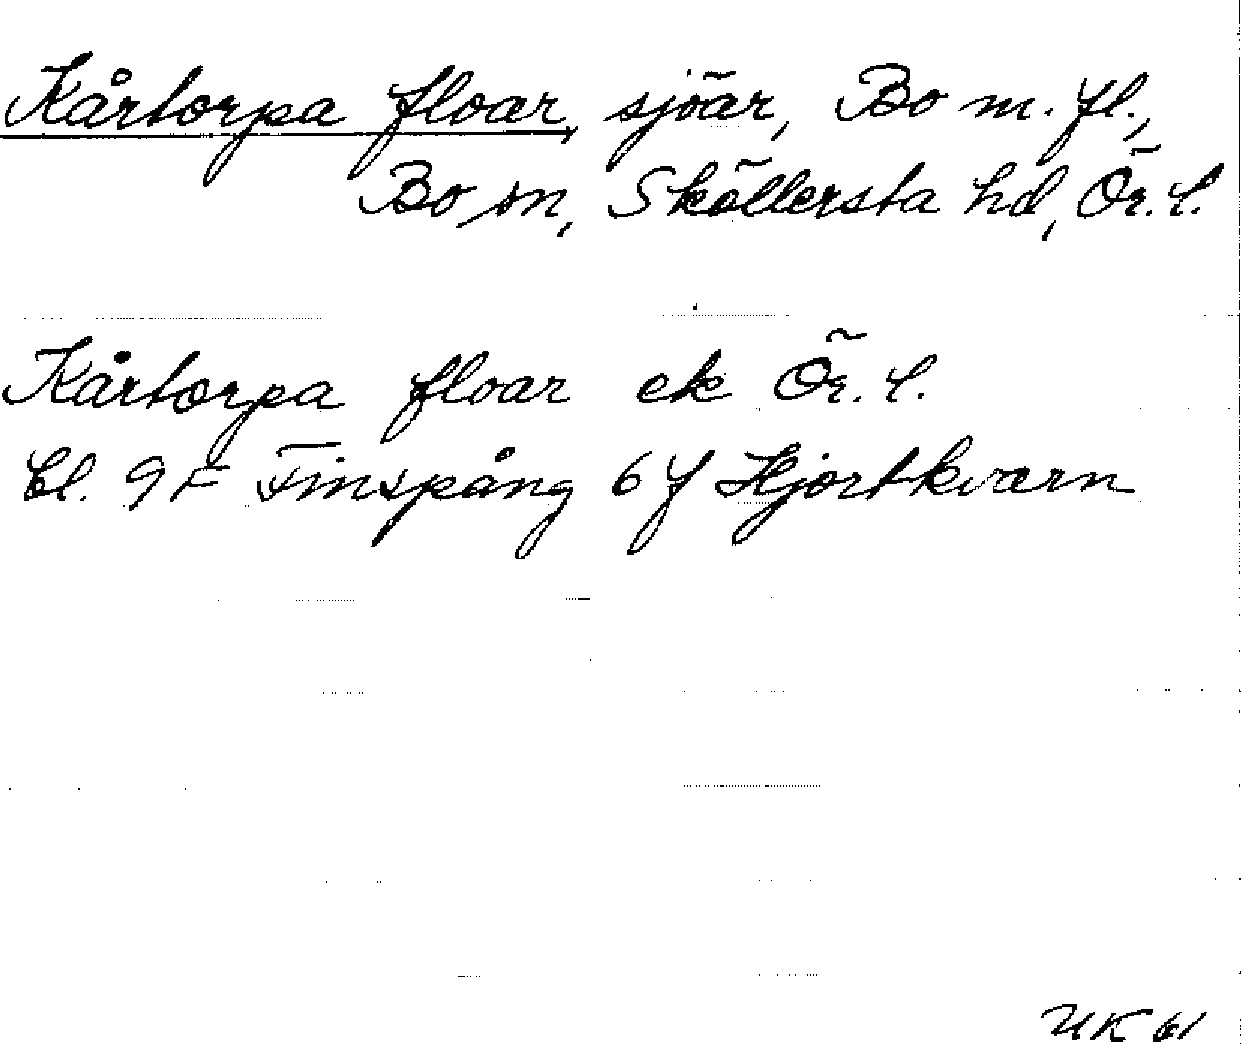 Kårtorpa floar, sjöar, Bo m. fl.,
Bo sn, Sköllersta hd, Ör. l.
Kårtorpa floar ek Ör. l.
bl. 9F Finspång 6f Hjortkvarn
UK 61